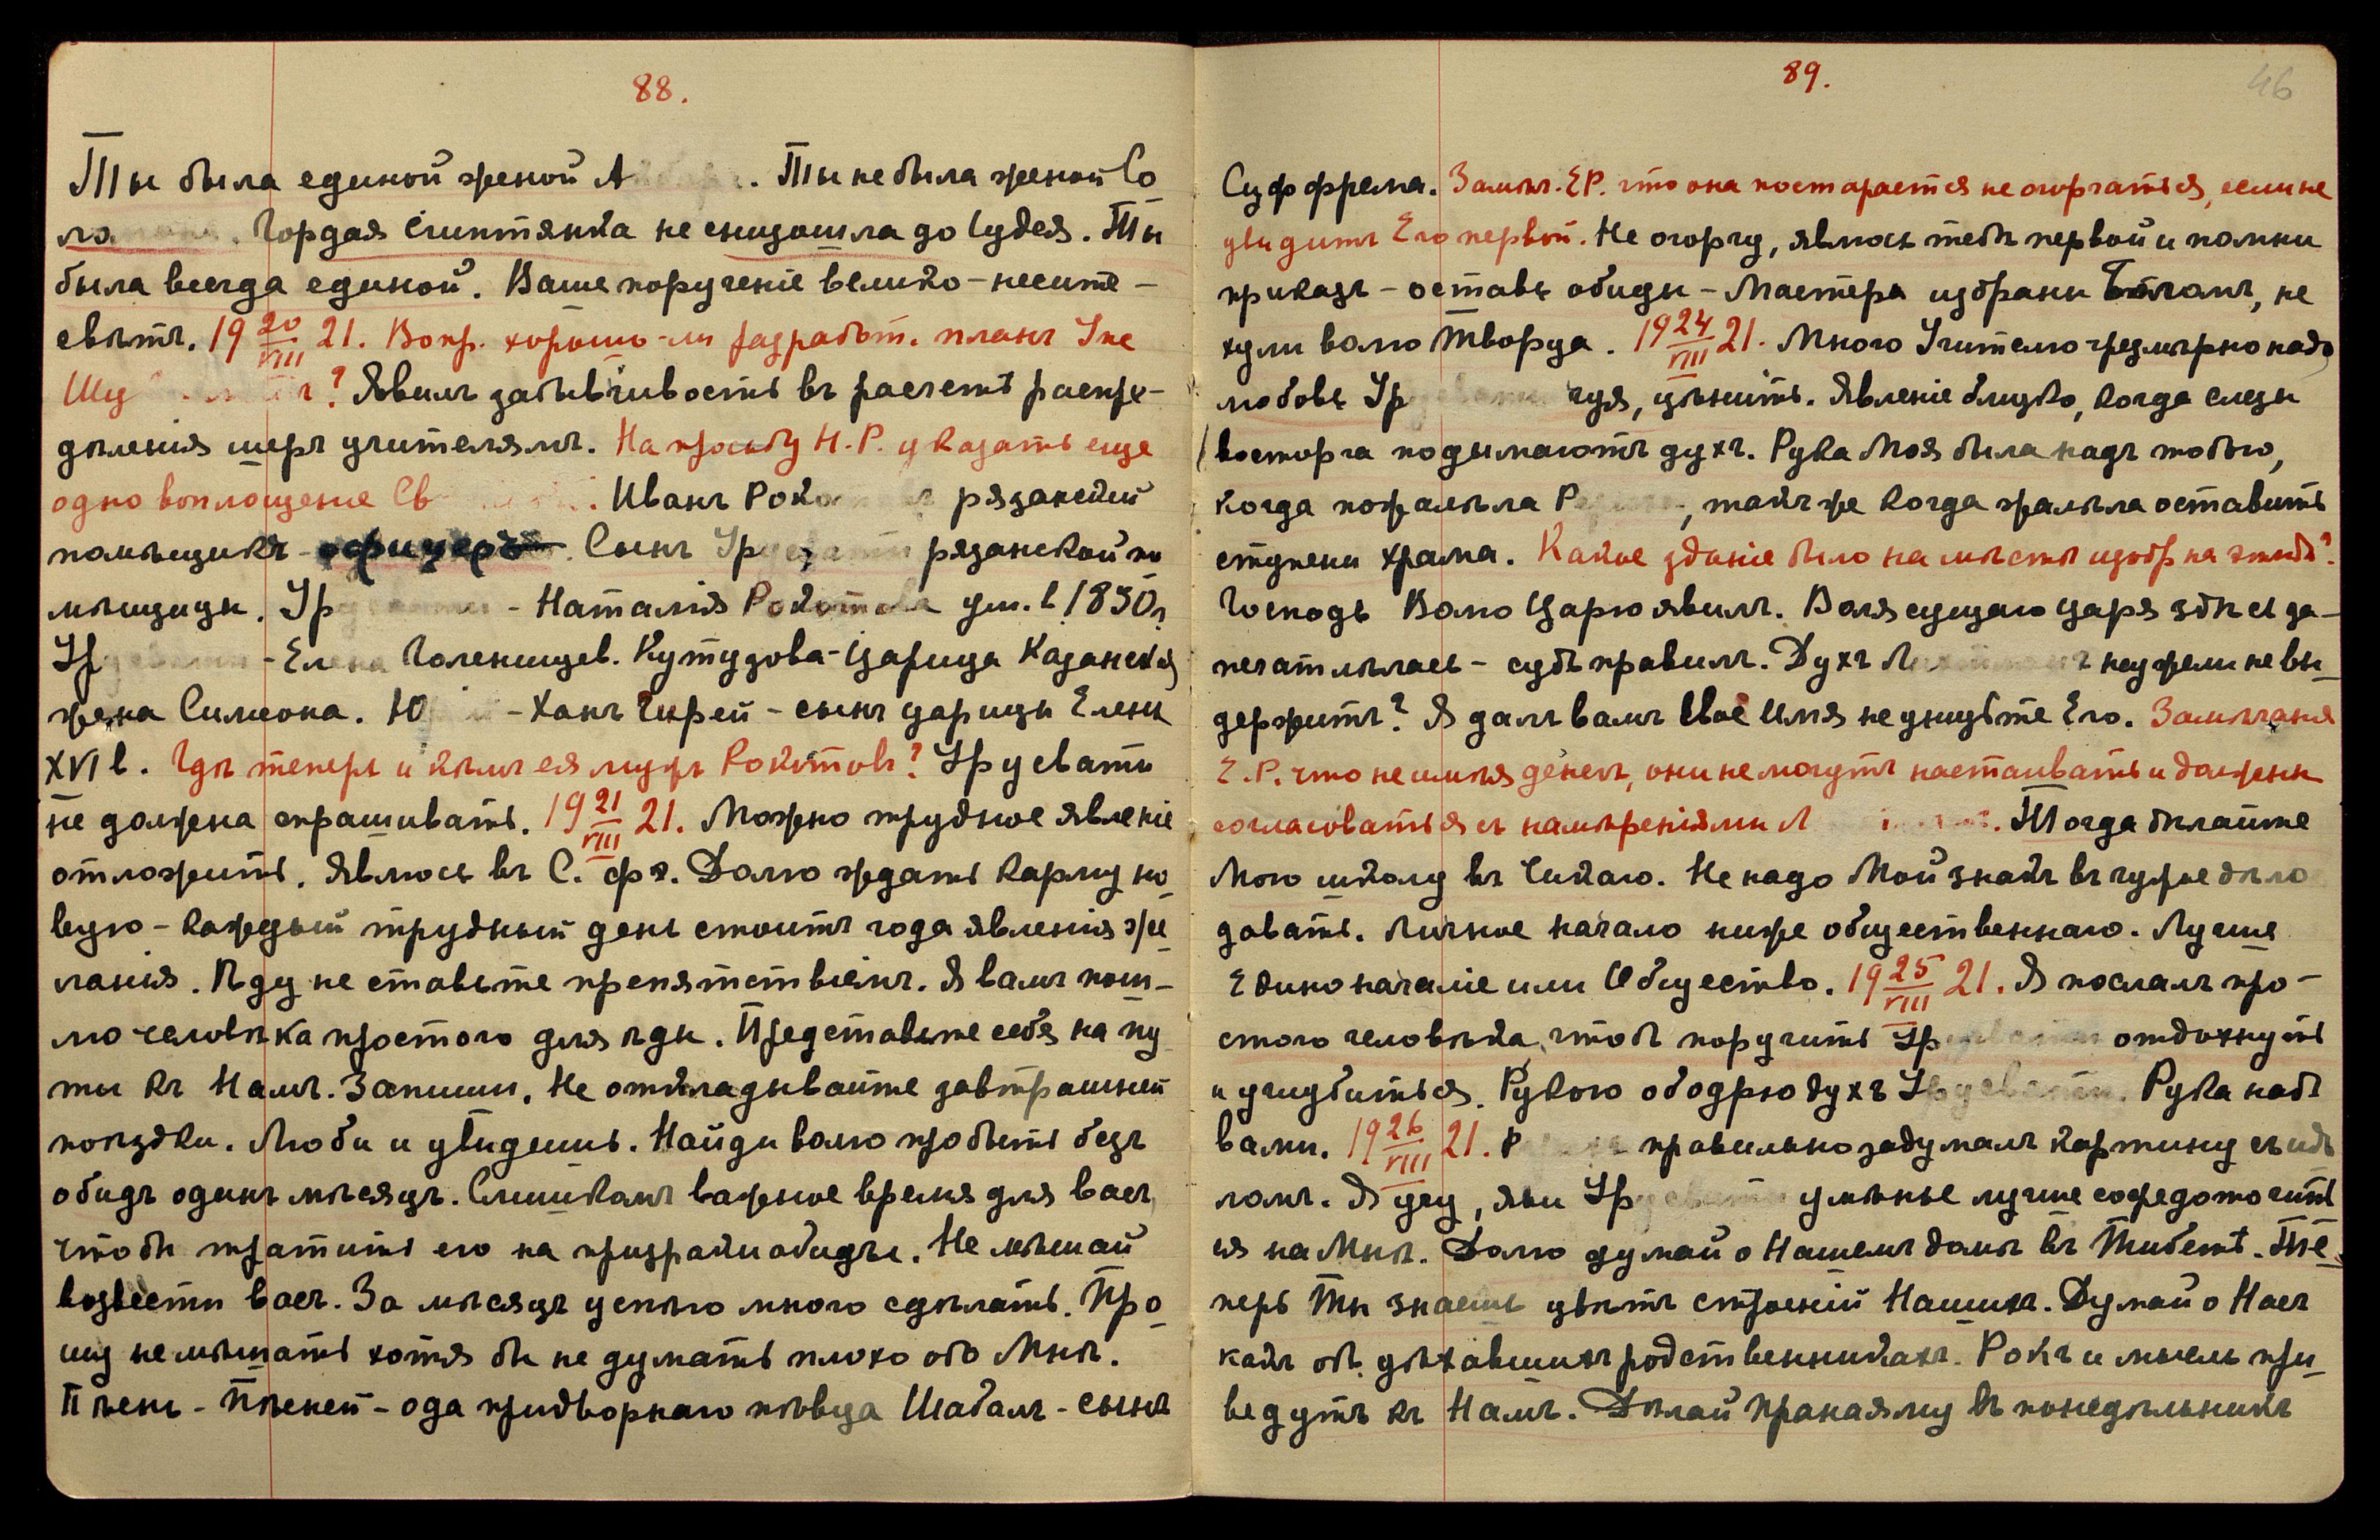 88.
Ты была единой женой А. Ты не была женой Со
ло. Гордая Египтянка не снизошла до Iудея. Ты
была всегда единой. Ваше порученiе велико – несите –
свѣтъ. 19 20/VIII 21. Вопр. хорошо-ли разработ. планъ Уке
Шу ? Явилъ забывчивость въ расчетѣ распре-
дѣленiя шеръ учителямъ. На просьбу Н.Р. указать еще
одно воплощенiе Св. Иванъ Рокотовъ рязанскiй
помѣщикъ – офицеръ. Сынъ Урусвати рязанской по
мѣщицы. Урусвати – Наталiя Рокотова ум. в 1850 г.
Урусвати – Елена Голенищев. Кутузова – Царица Казанская
жена Симеона. Ю – Ханъ Гирей – сынъ царицы Елены
XVI в. Гдѣ теперь и кѣмъ ея мужъ Рокотовъ? Урусвати
не должна спрашивать. 19 21/VIII 21. Можно трудное явленiе
отложить. Явлюсь въ С. Фр. Долго ждать карму но
вую – каждый трудный день стоитъ года явленiя же
ланiя. Иду не ставьте препятствiемъ. Я вамъ пош-
лю человѣка простого для ѣды. Представьте себя на пу
ти къ Намъ. Запиши. Не откладывайте завтрашней
поѣздки. Люби и увидишь. Найди волю пробыть безъ
обидъ одинъ мѣсяцъ. Слишкомъ важное время для васъ,
чтобы тратить его на призраки обиды. Не мѣшай
возвести васъ. За мѣсяцъ успѣю много сдѣлать. Про
шу не мѣшать хотя бы не думать плохо обо Мнѣ.
Пѣснь – Пѣсней – ода придворнаго пѣвца Шабалъ – сынъ
89.
46
Суффрема. Замѣч. Е.Р. что она постарается не огорчаться, если не
увидитъ Его первой. Не огорчу, явлюсь тебѣ первой и помни
приказъ – оставь обиды – Мастера избраны Благомъ, не
хули волю Творца. 19 24/VIII 21. Много Учителю чрезмѣрно надо
любовь Урусвати чуя, цѣнить. Явленiе близко, когда слезы
восторга подымаютъ духъ. Рука Моя была надъ тобою,
когда пожалѣла Р, такъ же когда жалѣла оставить
ступени храма. Какое зданiе было на мѣстѣ изобр на этюдѣ?
Господь Волю Царю явилъ. Воля сущаго царя здѣсь за-
печатлѣлась – судъ правилъ. Духъ Л неужели не вы
держитъ? Я далъ вамъ Свое Имя не унизьте Его. Замѣчанiя
Е.Р. что не имѣя денегъ, они не могутъ настаивать и должны
согласоваться съ намѣренiями Л. Тогда дѣлайте
Мою школу въ Чикаго. Не надо Мой знакъ въ чужое дѣло
давать. Личное начало ниже общественнаго. Лучше
Единоначалiе или Общество. 19 25/VIII 21. Я послалъ про-
стого человѣка, чтобъ поручить Урусвати отдохнуть
и углубиться. Рукою ободрю духъ Урусвати. Рука надъ
вами. 19 26/VIII 21. Р правильно задумалъ картину съ идо
ломъ. Я учу, яви Урусвати умѣнье лучше сосредоточить
ся на Мнѣ. Долго думай о Нашемъ домѣ въ Тибетѣ. Те
перь Ты знаешь цвѣтъ строенiй Нашихъ. Думай о Насъ
какъ объ уѣхавшихъ родственникахъ. Рокъ и мысль при
ведутъ къ Намъ. Дѣлай Пранаяму въ понедѣльникъ